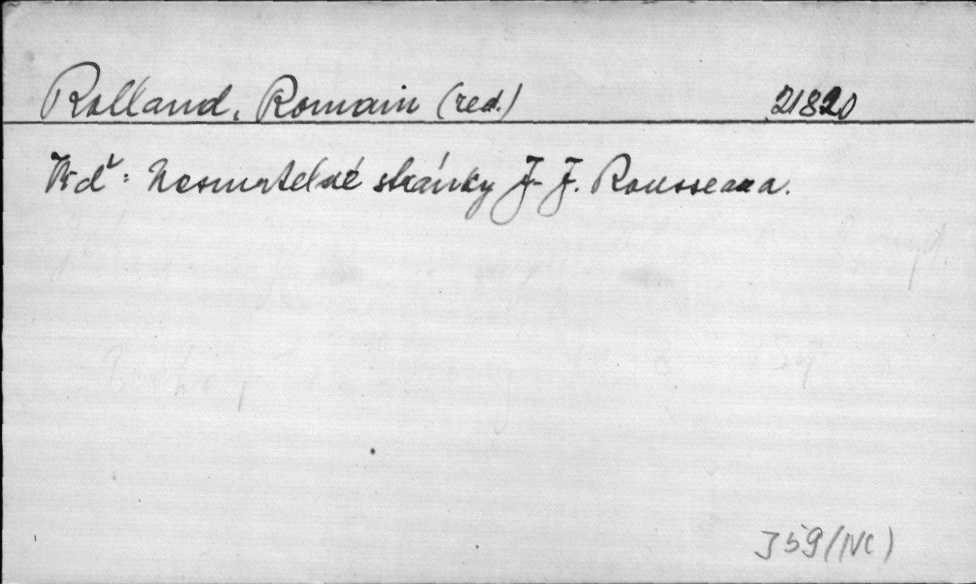 Rolland, Romain (red.) 21820
Viď: Nesmrtelné stránky J. J. Rousseaua.
J59(NC)